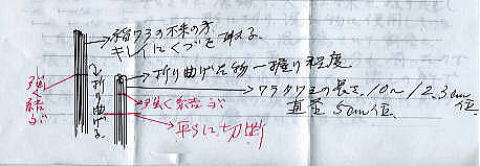 稲ワラの下葉の方
キレイにくづを取る。
折り曲げた物一握り程度
ワラタワシの長さ10～12.3cm位
直径5cm位
強く結ぶ
折り曲げる
強く結ぶ
平らに切断